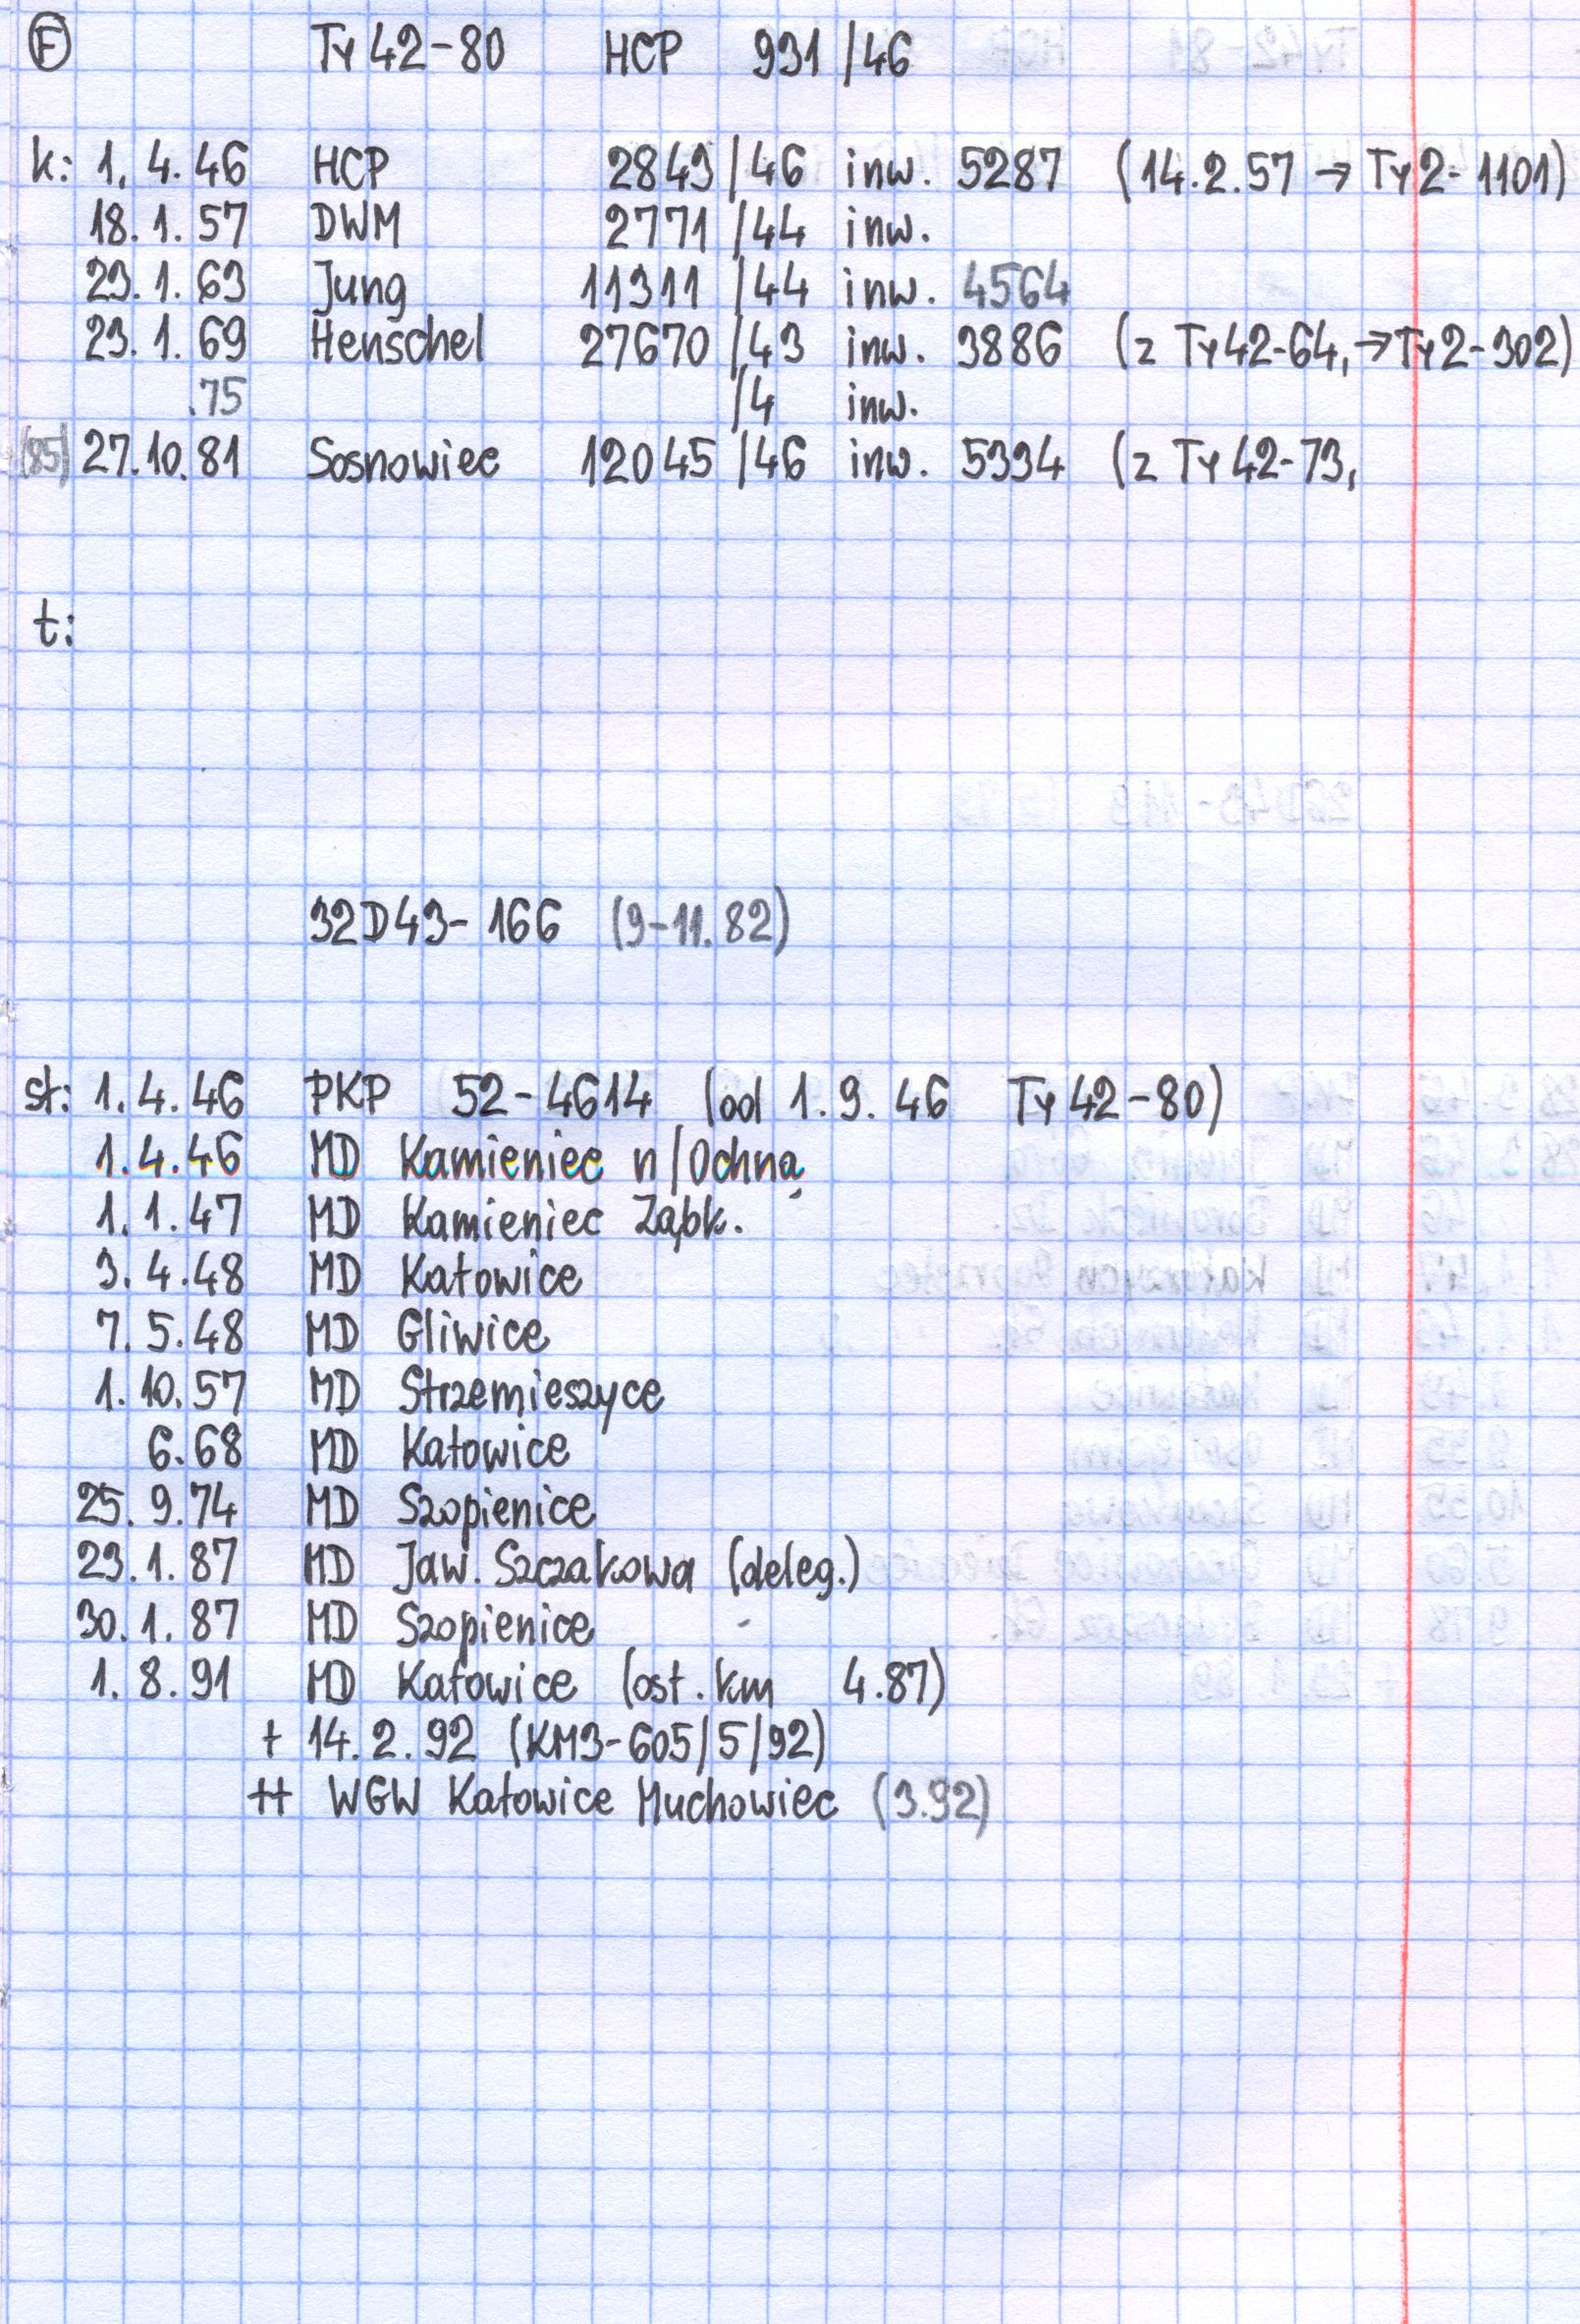 F Ty 42-80 HCP 931/46
k: 1.4.46 HCP 2843/46 inw. 5287 (14.2.57 → Ty2-1101)
18.1.57 DWM 2771/44 inw.
23.1.63 Jung 11311/44 inw. 4564
23.1.69 Henschel 27670/43 inw. 3886 (z Ty42-64, → Ty2-302)
.75 /4 inw.
(85) 27.10.81 Sosnowiec 12045/46 inw. 5334 (z Ty42-73,
t:
32D43-166 (9-11.82)
st: 1.4.46 PKP 52-4614 (od 1.9.46 Ty42-80)
1.4.46 MD Kamieniec n/Ochną
1.1.47 MD Kamieniec Ząbk.
3.4.48 MD Katowice
7.5.48 MD Gliwice
1.10.57 MD Strzemieszyce
6.68 MD Katowice
25.9.74 MD Szopienice
23.1.87 MD Jaw. Szczakowa (deleg.)
30.1.87 MD Szopienice
1.8.91 MD Katowice (ost. km 4.87)
+ 14.2.92 (KM3-605/5/92)
++ WGW Katowice Muchowiec (3.92)